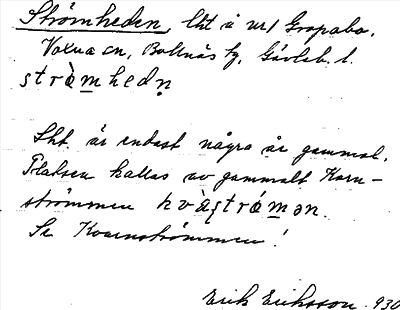 Strömheden, lht å urf Gropabo,
Voxna sn, Bollnäs fg, Gävleb. l.
stràmhedṇ
Lht. är endast några år gammal.
Platsen kallas av gammalt Karn-
strömmen kvàṣtrámən.
Se Kvarnströmmen!
Erik Eriksson. 930